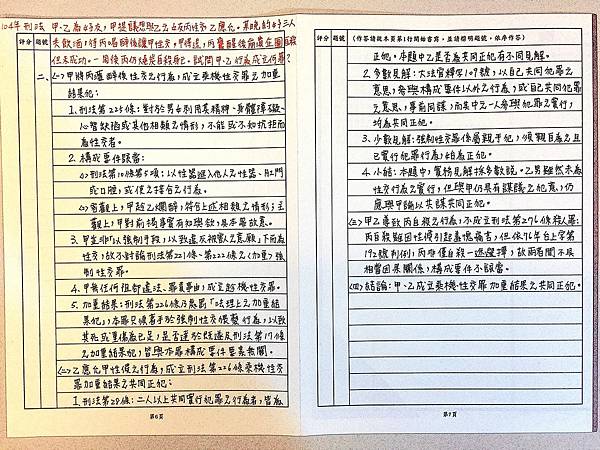 104年刑法 甲、乙為好友,甲提議想與乙之女友丙性交,乙應允。某晚約好三人
去飲酒,待丙喝醉後讓甲性交,甲得逞,丙
但未成功。一周後丙仍燒炭自殺死亡。試問甲、乙行為成立何罪?
評分 題號
評分 題號 (作答請從本頁第1行開始書寫,並請標明題號,依序作答)
二、(一)甲將丙灌醉後性交之行為,成立乘機性交罪之加重
結果犯:
1. 刑法第225條:對於男女利用其精神、身體障礙、
心智缺陷或其他相類之情形,不能或不知抗拒而
為性交者。
2. 構成要件該當:
(1)刑法第10條第5項:以性器進入他人之性器、肛門
或口腔,或使之接合之行為。
(2)客觀上,甲趁乙爛醉,符合上述相類之情形;主
觀上,甲對前揭事實有知與欲,具本罪故意。
3. 甲並非「以強制手段,以致違反被害人之意願」下而為
性交,故不討論刑法第221條、第222條之(加重)強
制性交罪。
4. 甲無任何阻卻違法、罪責事由,成立趁機性交罪。
5. 加重結果:刑法第226條乃處罰「法理上之加重結
果犯」,本罪只須著手於強制性交猥褻行為,以致
其死或重傷為已足,是否達於既遂及刑法第17條
之加重結果犯,皆與本罪構成要件要素無關。
(二)乙應允甲性侵之行為,成立刑法第226條乘機性交
罪加重結果之共同正犯:
1. 刑法第28條:二人以上共同實行犯罪之行為者,皆為
第6頁
正犯。本題中乙是否為共同正犯有不同見解。
2. 多數見解:大法官釋字109號,以自己共同犯罪之
意思,參與構成要件以外之行為,或自己共同犯罪
之意思,事前同謀,而其中之一人參與犯罪之實行,
均為共同正犯。
3. 少數見解:強制性交罪係屬親手犯,須親自為之且
已實行犯罪行為,始為正犯。
4. 小結:本題中,實務見解採多數說。乙男雖然未為
性交行為之實行,但與甲仍具有謀議之犯意,仍
應與甲論以共謀共同正犯。
(三)甲乙導致丙自殺之行為,不成立刑法第276條殺人罪:
丙自殺雖因性侵引起羞愧痛苦,但依76年台上字第
192號判例,丙非僅自殺一途選擇,故兩者間不具
相當因果關係,構成要件不該當。
(四)結論:甲、乙成立乘機性交罪加重結果之共同正犯。
第7頁